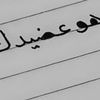 هو عضيدك